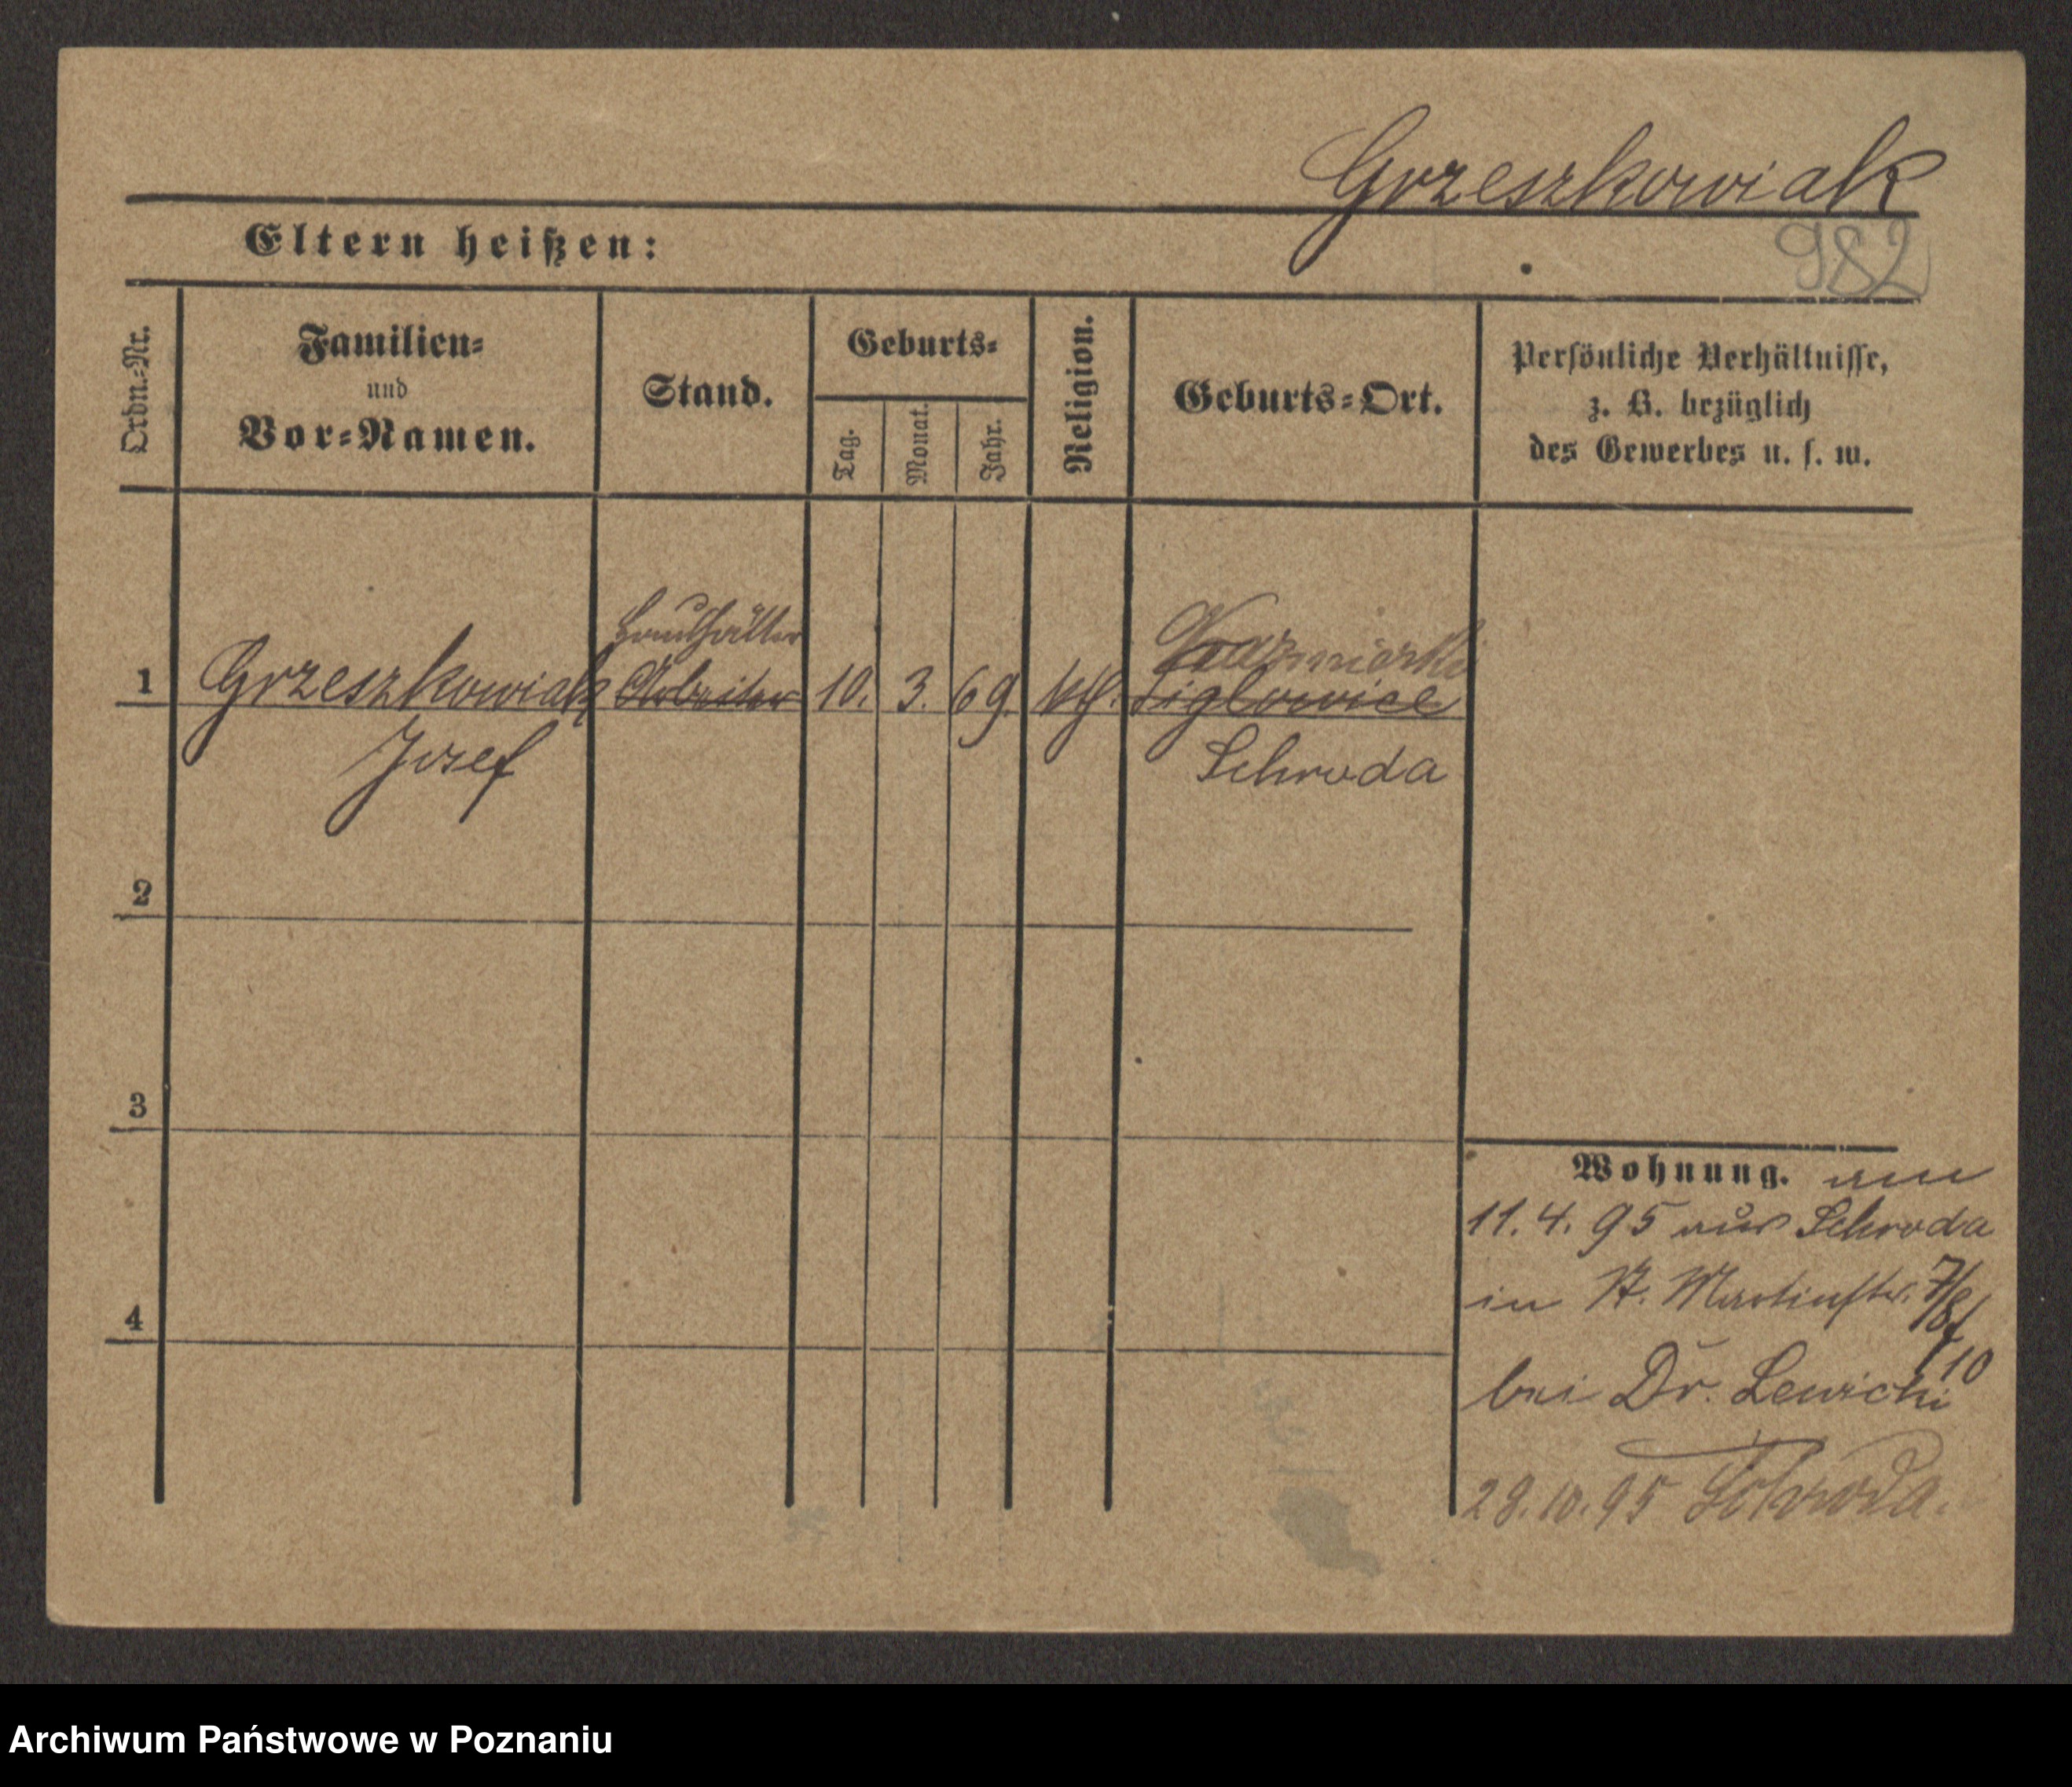 Grzeszkowiak
982
Eltern heißen:
Ordn.-Nr.
Familien-
und
Vor-Namen.
Stand.
Geburts-
Tag.
Monat.
Jahr.
Religion.
Geburts-Ort.
Persönliche Verhältnisse,
z. B. bezüglich
des Gewerbes u. s. w.
Haushälter
Kazmierki
1 Grzeszkowiak Arbeiter 10. 3. 69. kth. Siglowice
Josef
Schroda
2
3
4
Wohnung. am
11.4.95 aus Schroda
in St. Martinstr. 7/8
10
bei Dr. Lewicki
28.10.95 Schroda.
Archiwum Państwowe w Poznaniu